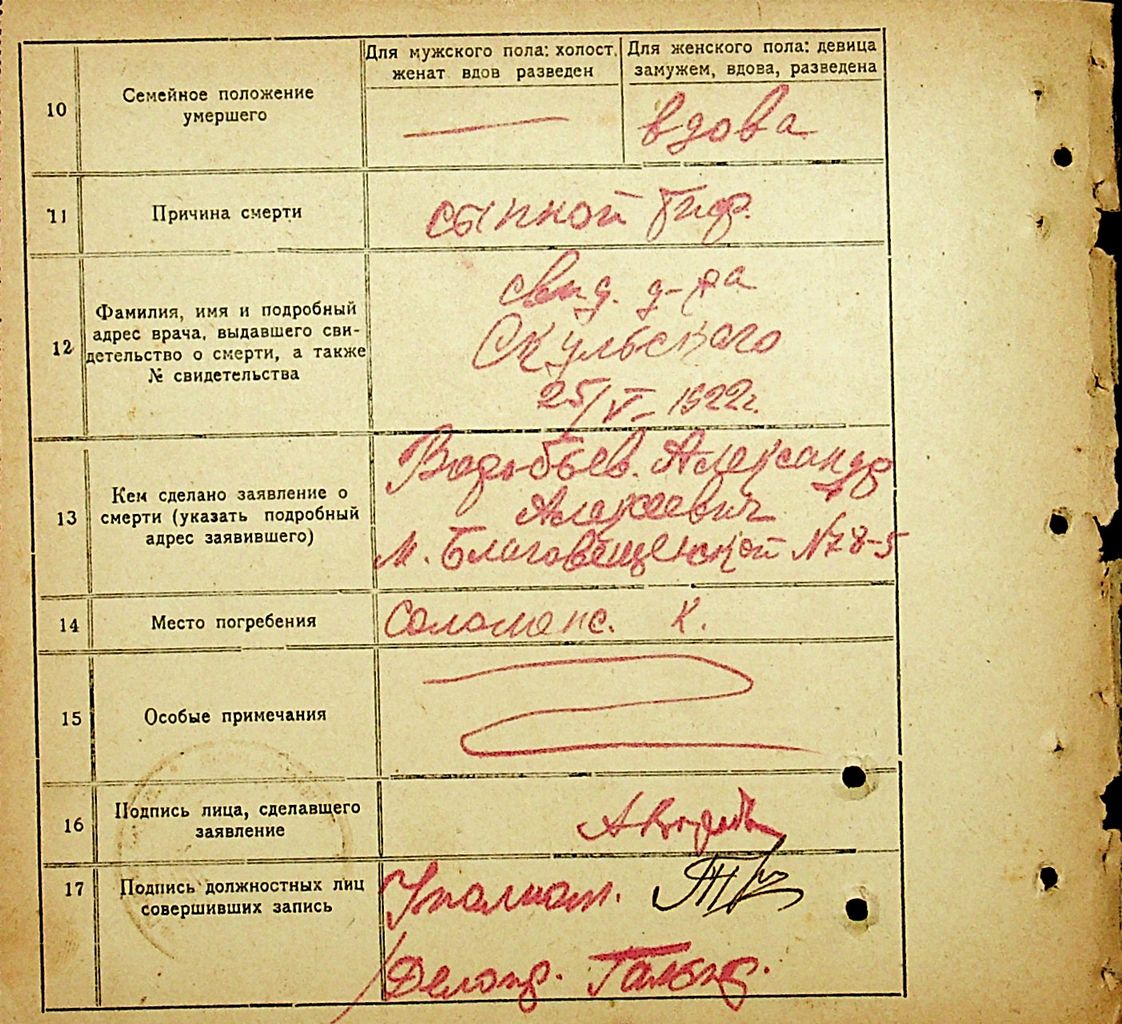 Для мужского пола: холост,
женат вдов разведен
Для женского пола: девица
замужем, вдова, разведена
10
Семейное положение
умершего
вдова
11
Причина смерти
сыпной тиф.
12
Фамилия, имя и подробный
адрес врача, выдавшего сви-
детельство о смерти, а также
№ свидетельства
свид. д-ра
Скульского
25/V- 1922г.
13
Кем сделано заявление о
смерти (указать подробный
адрес заявившего)
Воробьев. Александр
Алексеевич
М. Благовещенской №78-5
14
Место погребения
Соломенс. К.
15
Особые примечания
16
Подпись лица, сделавшего
заявление
17
Подпись должностных лиц
совершивших запись
Уполном.
Делопр.